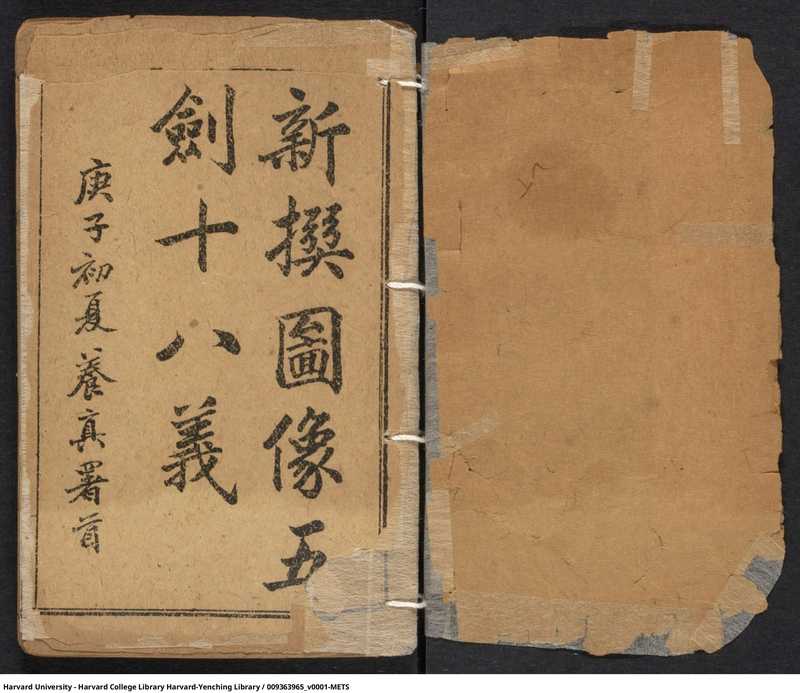 新撰圖像五
劍十八義
庚子初夏養真署首
Harvard University - Harvard College Library Harvard-Yenching Library / 009363965_v0001-METS